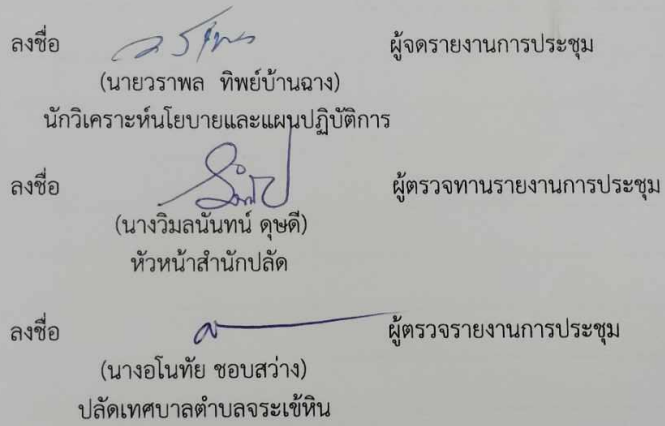 ลงชื่อ ผู้จดรายงานการประชุม
(นายวราพล ทิพย์บ้านฉาง)
นักวิเคราะห์นโยบายและแผนปฏิบัติการ
ลงชื่อ ผู้ตรวจทานรายงานการประชุม
(นางวิมลนันทน์ ดุษดี)
หัวหน้าสำนักปลัด
ลงชื่อ ผู้ตรวจรายงานการประชุม
(นางอโนทัย ชอบสว่าง)
ปลัดเทศบาลตำบลจระเข้หิน